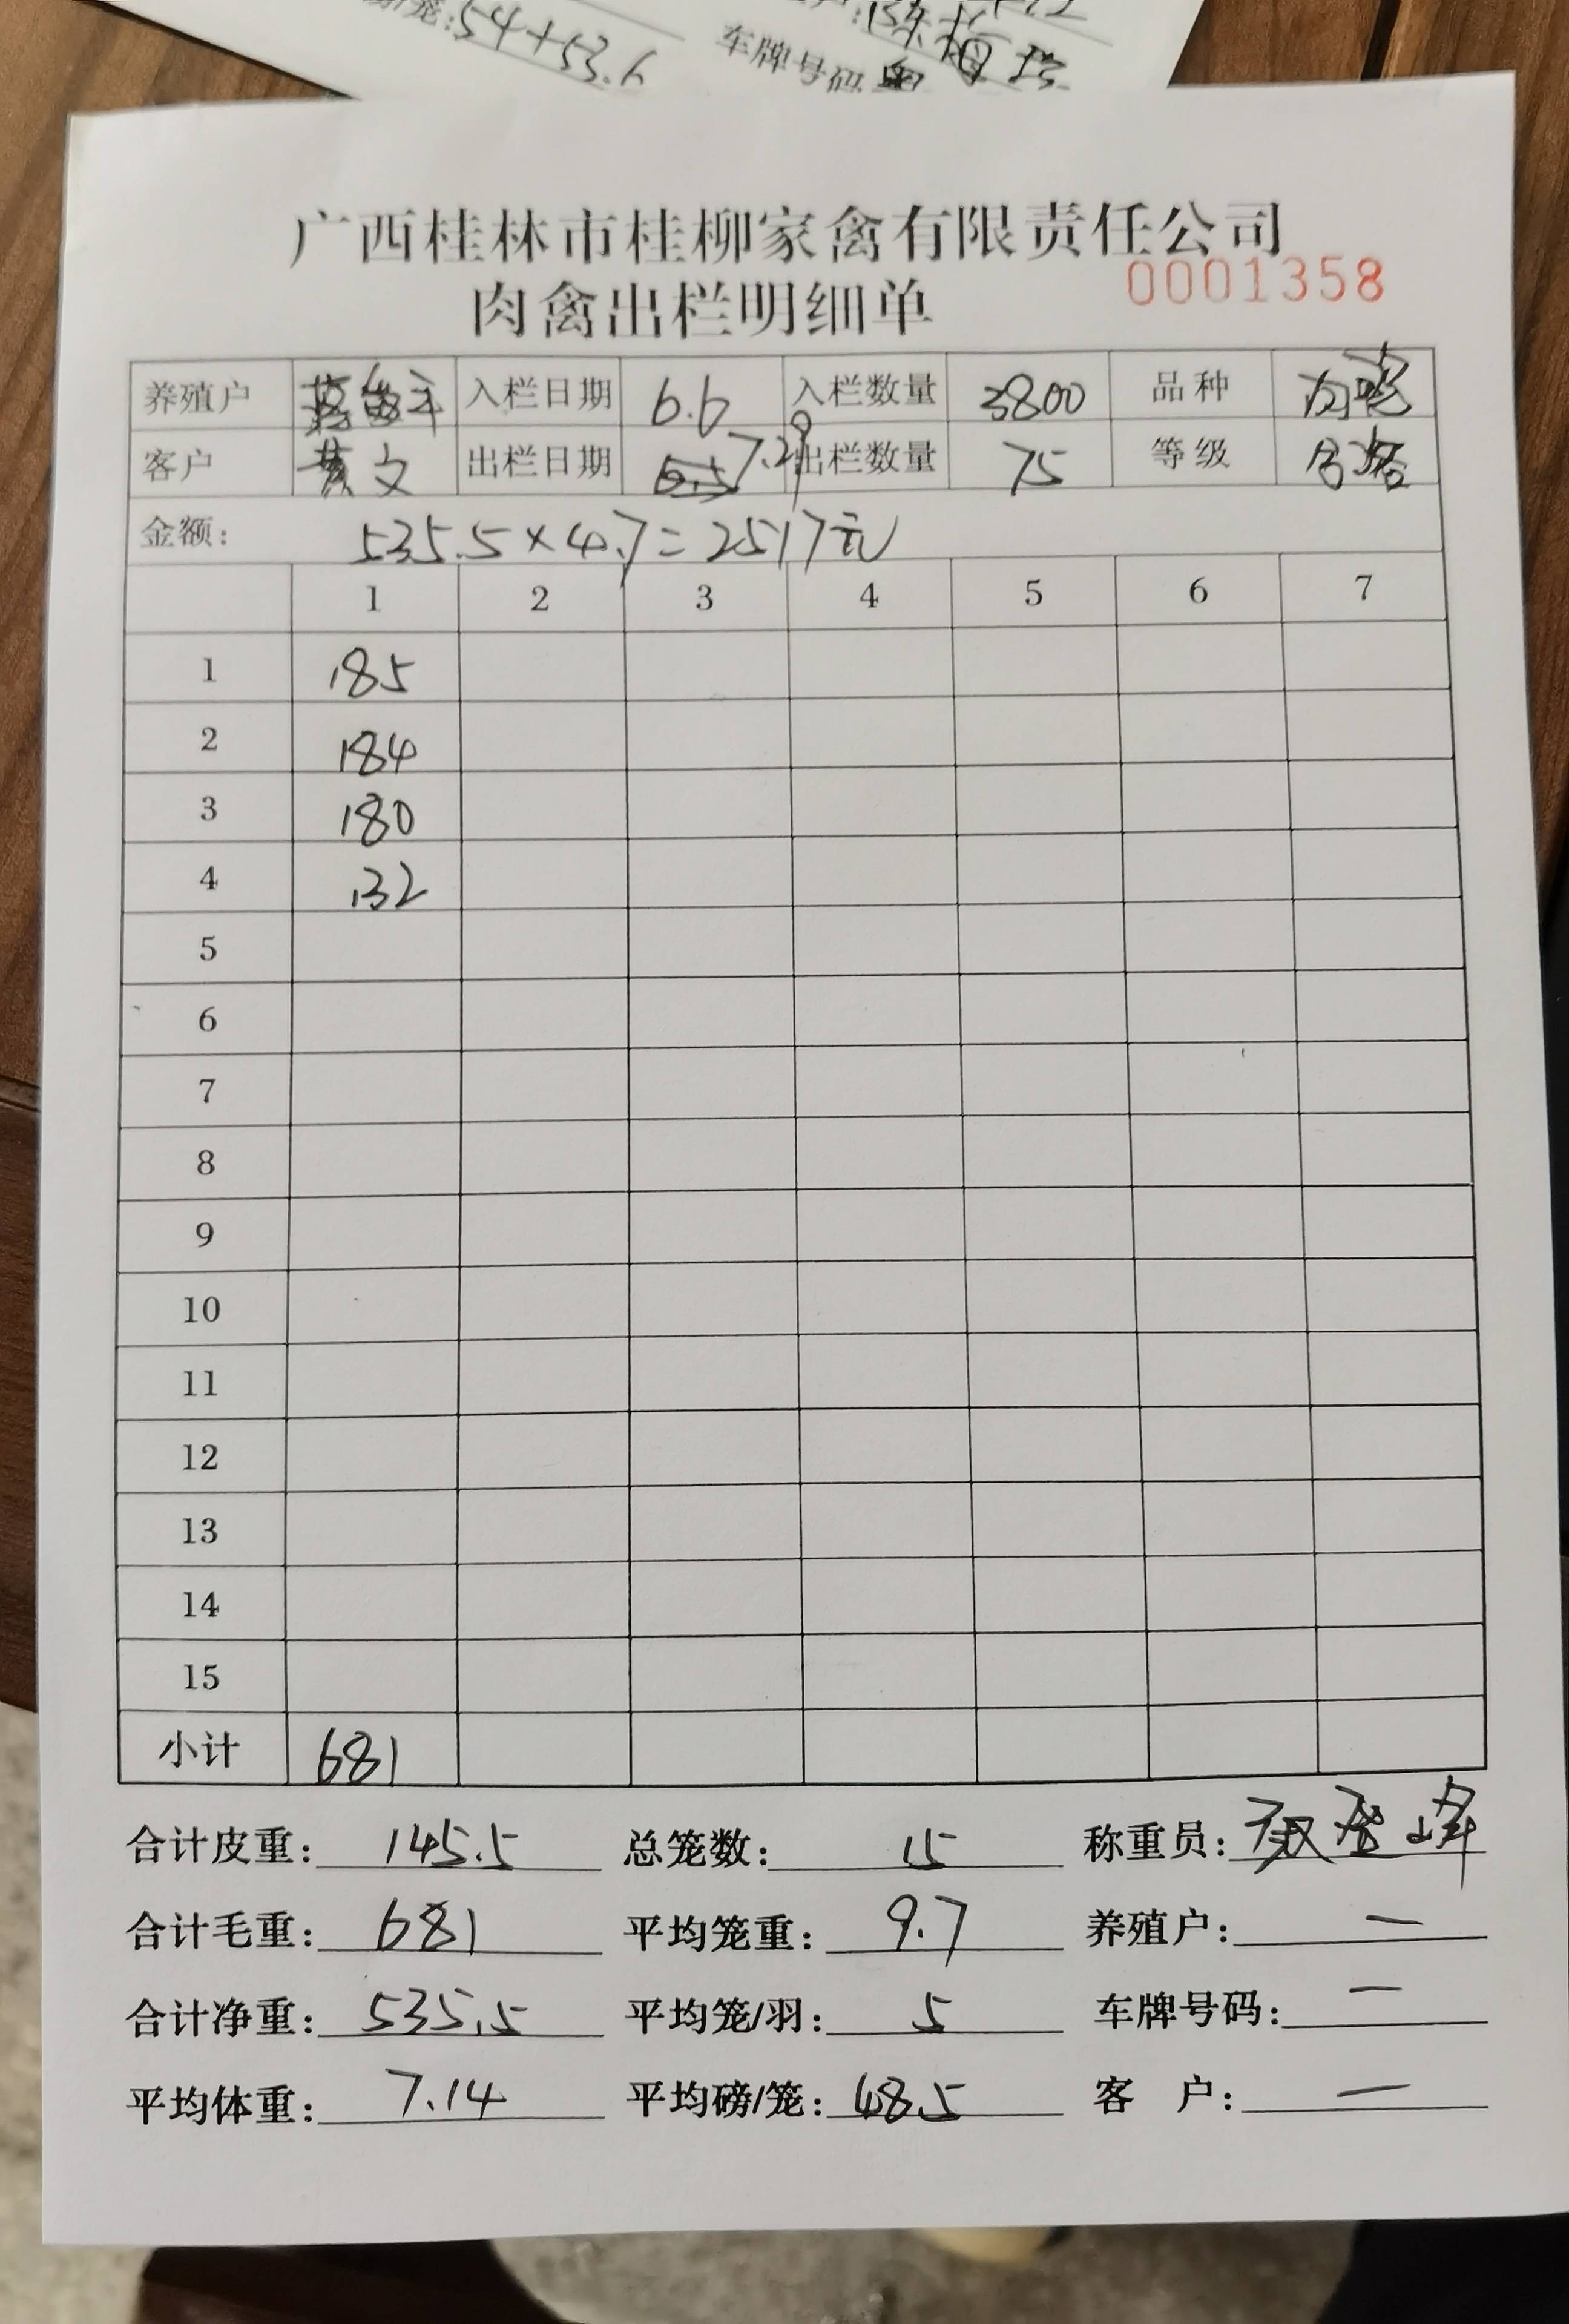 笼:54+53.6 车牌号码
广西桂林市桂柳家禽有限责任公司
肉禽出栏明细单 0001358
养殖户 入栏日期 6.6 入栏数量 3800 品种
客户 黄文 出栏日期 7.29 出栏数量 75 等级 合格
金额: 535.5×4.7=2517元
1 2 3 4 5 6 7
1 185
2 184
3 180
4 132
5
6
7
8
9
10
11
12
13
14
15
小计 681
合计皮重: 145.5 总笼数: 15 称重员:
合计毛重: 681 平均笼重: 9.7 养殖户: 一
合计净重: 535.5 平均笼/羽: 5 车牌号码: 一
平均体重: 7.14 平均磅/笼: 48.5 客 户: 一